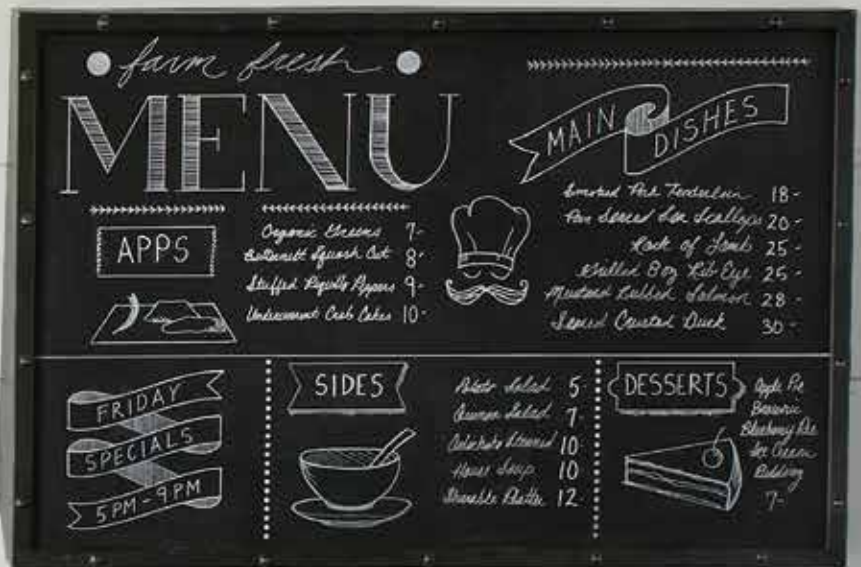 farm fresh
MENU
APPS
Organic Greens 7-
Butternut Squash 8-
Stuffed Peppers 9-
Crab Cakes 10-
MAIN DISHES
Smoked Pork Tenderloin 18-
Pan Seared Sea Scallops 20-
Rack of Lamb 25-
Grilled 8oz Rib Eye 25-
Mustard Rubbed Salmon 28-
Crusted Duck 30-
FRIDAY
SPECIALS
5PM-9PM
SIDES
Potato Salad 5
Salad 7
10
House Soup 10
Sharable Platter 12
DESSERTS
Apple Pie
Brownie
Blueberry Pie
Ice Cream
Pudding
7-